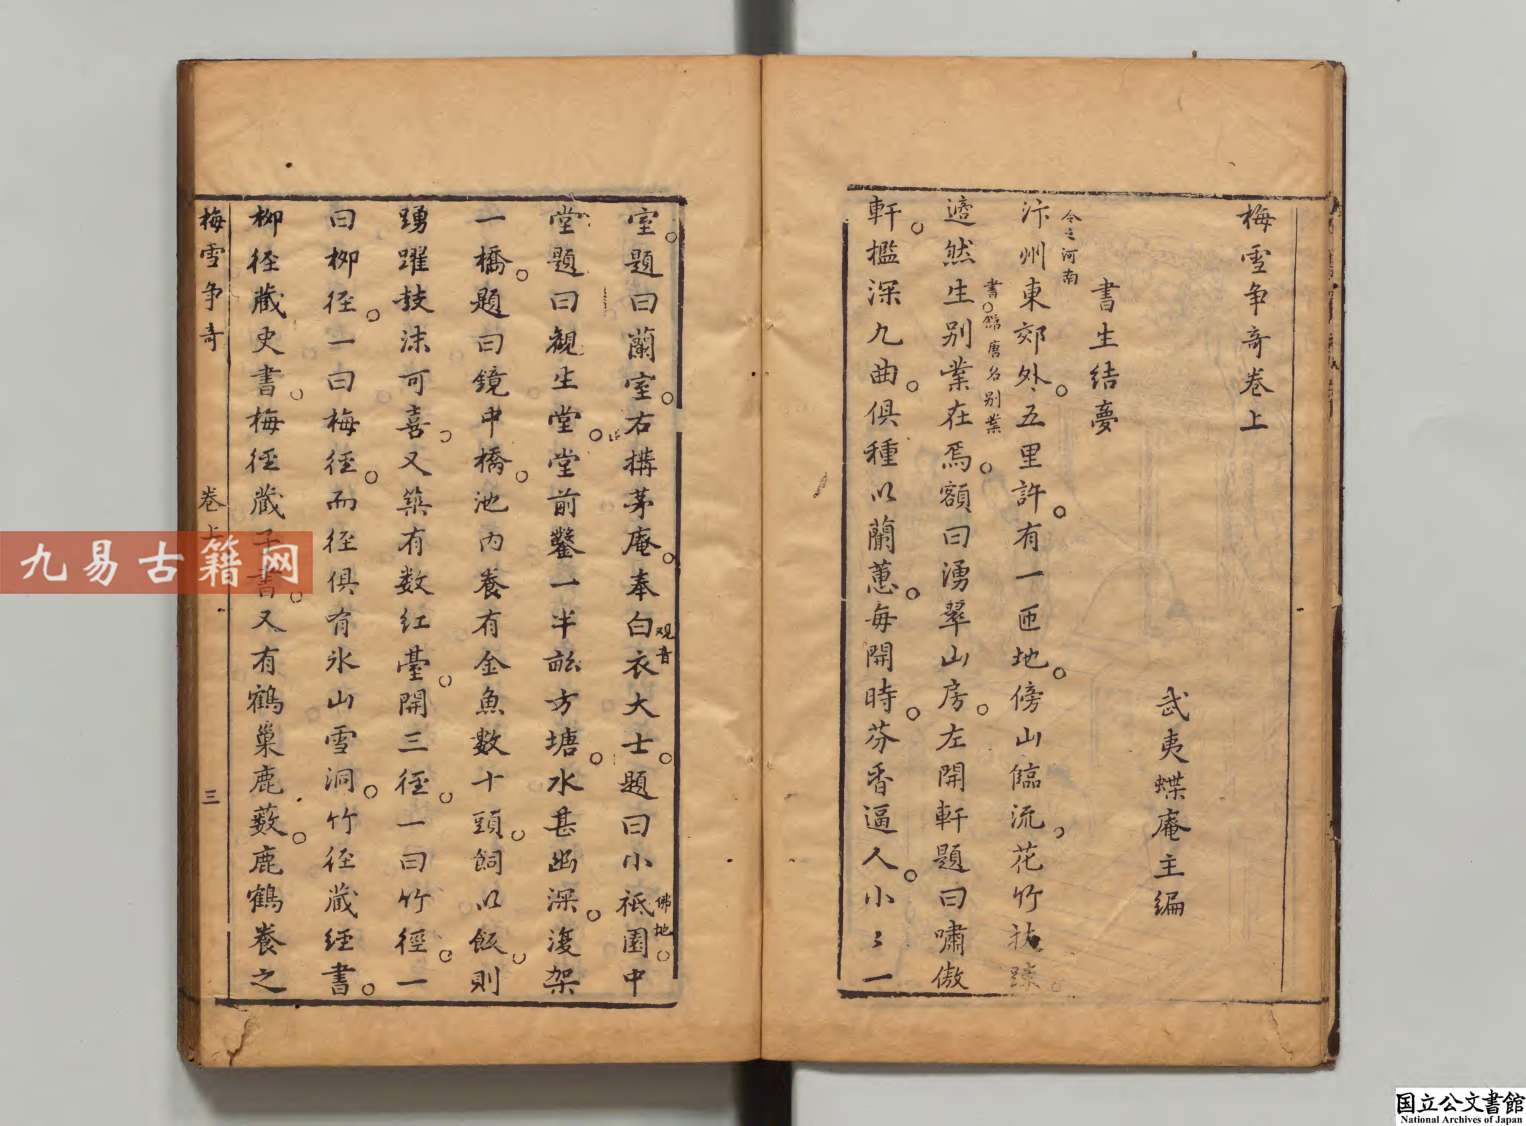 梅雪争奇卷上
武夷蝶庵主編
書生結夢
今之河南
汴州東郊外五里許有一匝地傍山臨流花竹扶踈
書館唐名別業
遶然生别業在焉額曰湧翠山房左開軒題曰嘯傲
軒檻深九曲俱種以蘭蕙每開時芬香逼人小〻一
室題曰蘭室右搆茅庵奉白衣大士題曰小祗園中
观音
佛地
堂題曰觀生堂堂前鑿一半畝方塘水甚幽深復架
一橋題曰鏡中橋池内養有金魚數十頭飼以飯則
踴躍技沫可喜又築有数紅臺開三径一曰竹徑一
曰柳径一曰梅径而径俱有氷山雪洞竹径藏經書
柳径藏史書梅径藏子書又有鶴巢鹿藪鹿鶴養之
梅雪争奇
卷上
三
九易古籍网
国立公文書館
National Archives of Japan